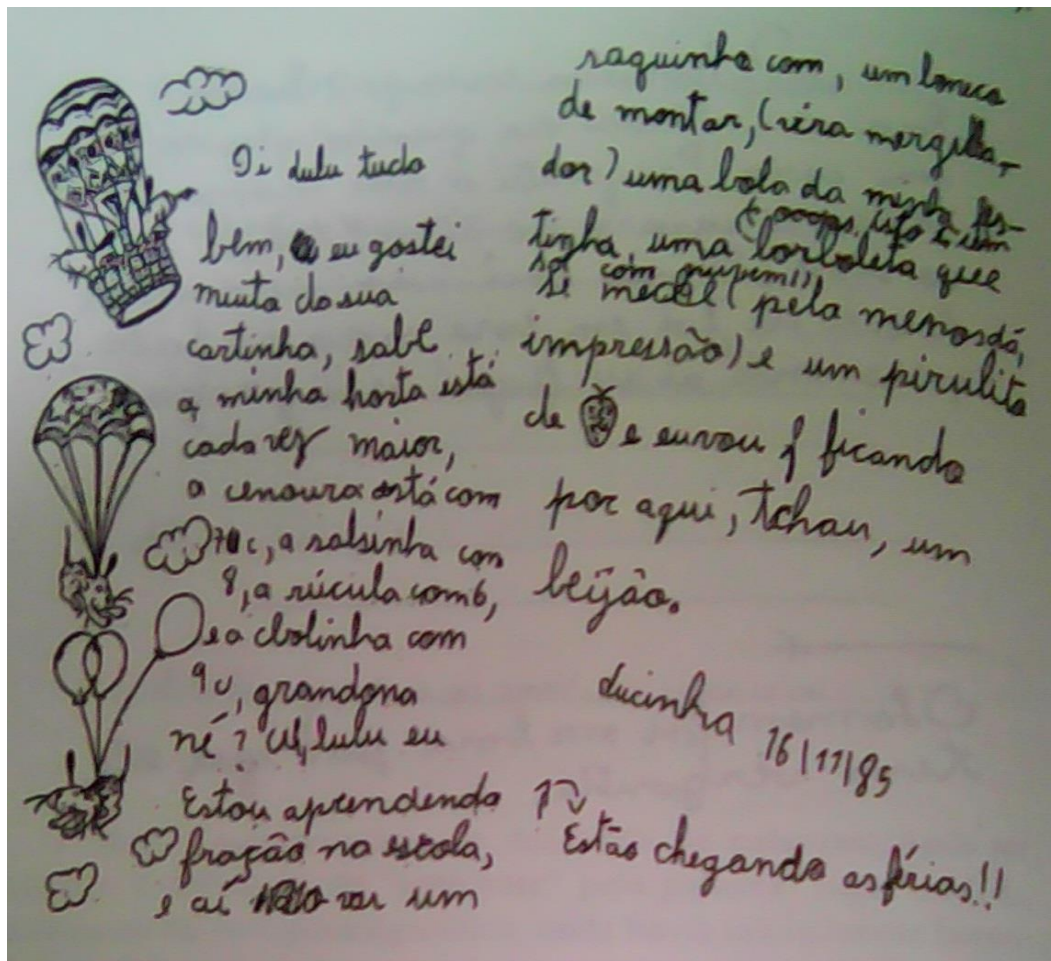 Oi lulu tudo
bem, eu gostei
muito da sua
cartinha, sabe
a minha horta está
cada vez maior,
a cenoura está com
10 c, a salsinha com
8, a rúcula com 6,
e a cbolinha com
9 c, grandona
né? lulu eu
Estou aprendendo
fração na escola,
e aí vai um
saquinho com, um boneco
de montar, (vira mergulha-
dor) uma bola da minha fes-
tinha, uma borboleta que
(é ooops, isto é um
se mece (pela menos dá,
impressão) e um pirulito
de e eu vou ficando
por aqui, tchau, um
beijão.
Lucinha 16/11/85
Estão chegando as férias!!